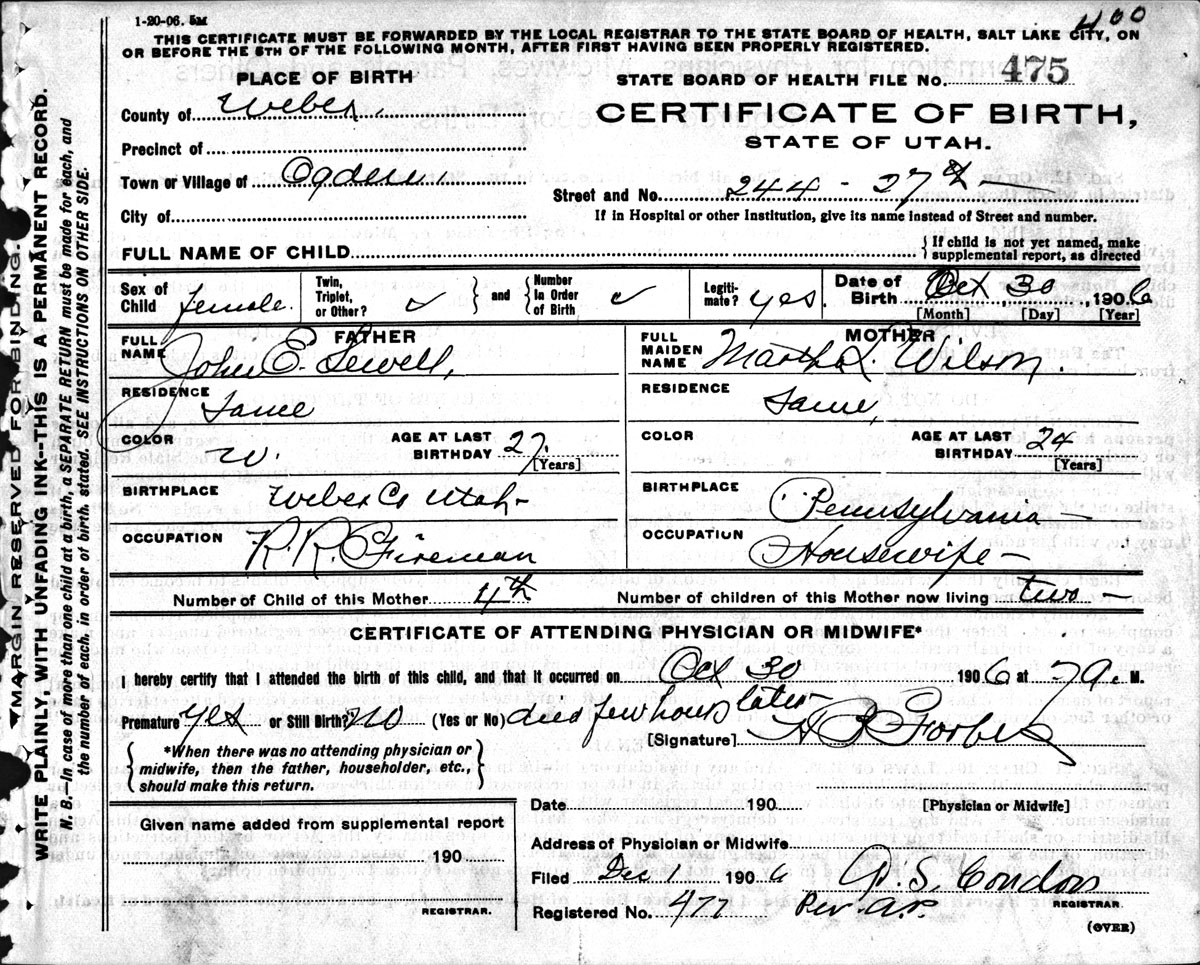 1-20-06. 5M
400
THIS CERTIFICATE MUST BE FORWARDED BY THE LOCAL REGISTRAR TO THE STATE BOARD OF HEALTH, SALT LAKE CITY, ON
OR BEFORE THE 5TH OF THE FOLLOWING MONTH, AFTER FIRST HAVING BEEN PROPERLY REGISTERED.
PLACE OF BIRTH
STATE BOARD OF HEALTH FILE No. 475
County of Weber.
CERTIFICATE OF BIRTH,
Precinct of
STATE OF UTAH.
Town or Village of Ogden.
Street and No. 244 - 27th
City of
If in Hospital or other Institution, give its name instead of Street and number.
FULL NAME OF CHILD
{ If child is not yet named, make
supplemental report, as directed
Sex of Child female. Twin, Triplet, or Other? and { Number In Order of Birth Legiti- mate? yes. Date of Birth Oct 30 1906
[Month] [Day] [Year]
FATHER MOTHER
FULL NAME John E. Sewell, FULL MAIDEN NAME Martha L. Wilson.
RESIDENCE Same RESIDENCE Same,
COLOR W. AGE AT LAST BIRTHDAY 27. [Years] COLOR AGE AT LAST BIRTHDAY 24 [Years]
BIRTHPLACE Weber Co Utah- BIRTHPLACE Pennsylvania-
OCCUPATION R.R. Fireman OCCUPATION Housewife-
Number of Child of this Mother 4th Number of children of this Mother now living two -
CERTIFICATE OF ATTENDING PHYSICIAN OR MIDWIFE*
I hereby certify that I attended the birth of this child, and that it occurred on Oct 30 1906 at 7 a. M.
Premature yes or Still Birth? no (Yes or No) died few hours later-
[Signature] Forbes
{ *When there was no attending physician or
midwife, then the father, householder, etc.,
should make this return. }
Date 190 [Physician or Midwife]
Given name added from supplemental report
Address of Physician or Midwife
190
Filed Dec 1 1906 Condon
REGISTRAR.
REGISTRAR.
Registered No. 477 Per a.P.
(OVER)
MARGIN RESERVED FOR BINDING.
WRITE PLAINLY, WITH UNFADING INK—THIS IS A PERMANENT RECORD.
N. B.—In case of more than one child at a birth, a SEPARATE RETURN must be made for each, and
the number of each, in order of birth, stated. SEE INSTRUCTIONS ON OTHER SIDE.